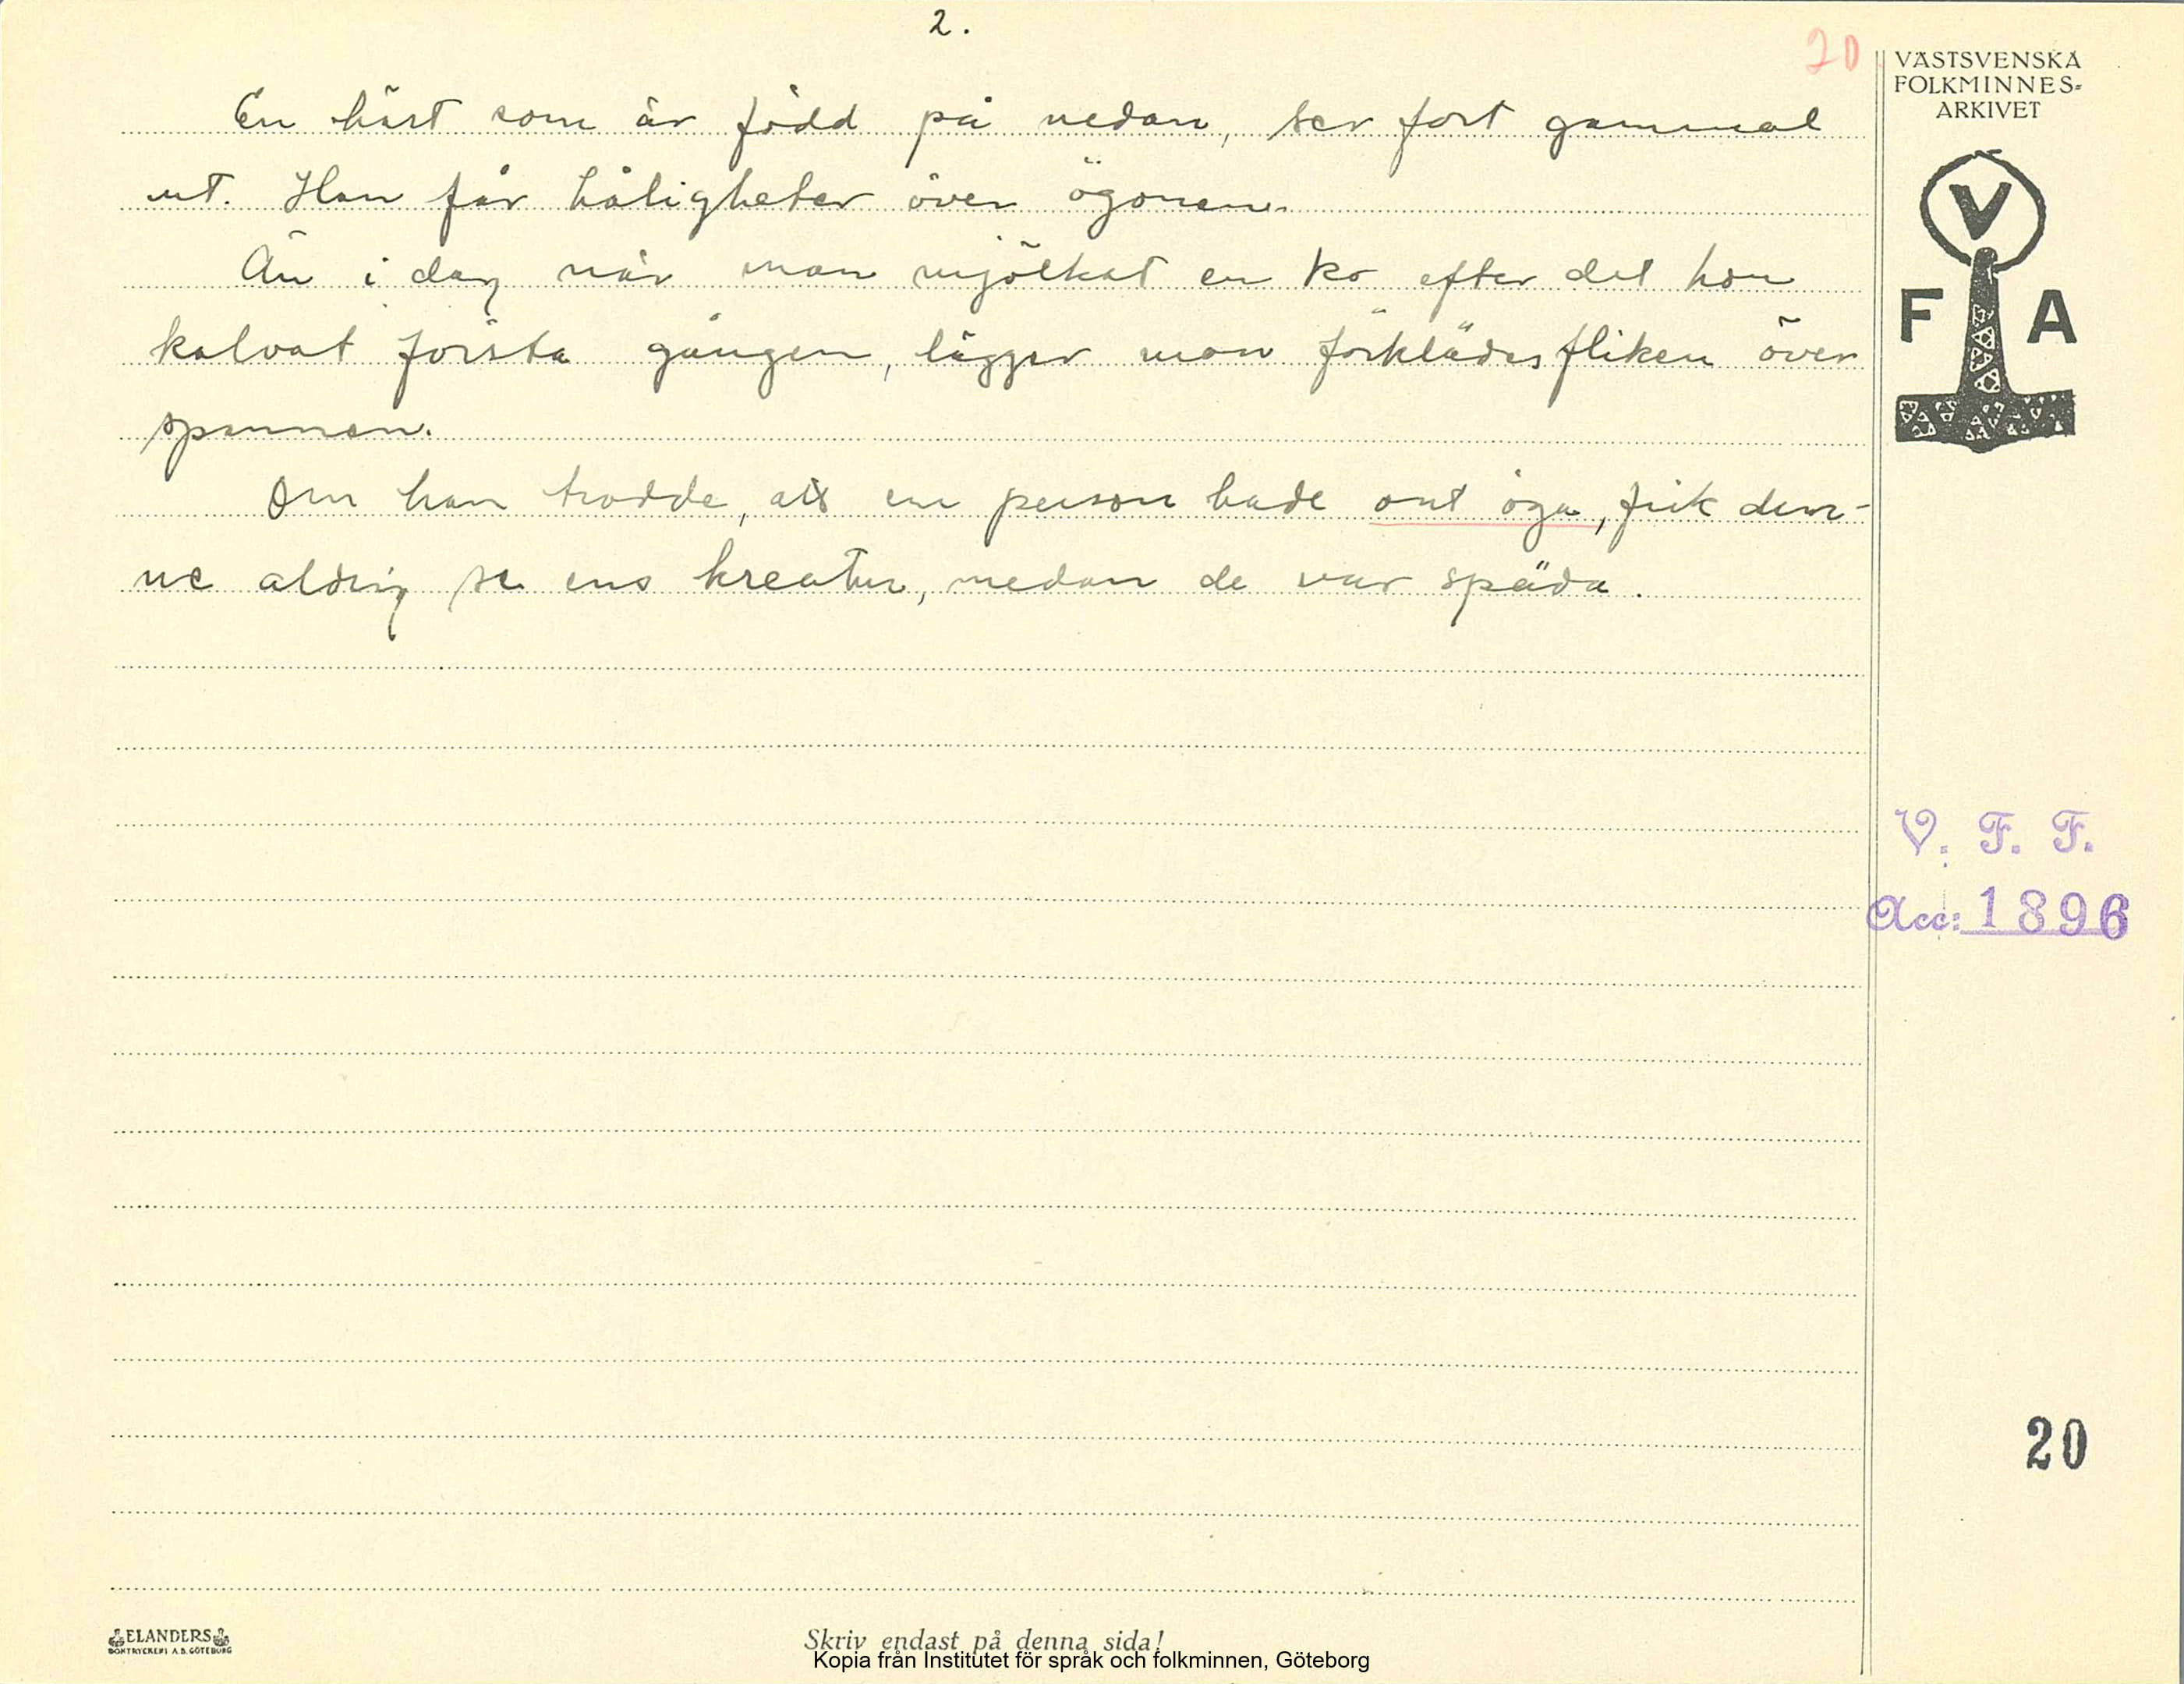 2.
20
VÄSTSVENSKA
FOLKMINNES=
ARKIVET
En häst som är född på nedan, ser fort gammal
ut. Han får håligheter över ögonen.
Än i dag när man mjölkat en ko efter det hon
kalvat första gången, lägger man förklädesfliken över
spannen.
Om han trodde, att en person hade ont öga, fick den-
ne aldrig se ens kreatur, medan de var späda.
V
F A
V. F. F.
Acc: 1896
20
ELANDERS
BOKTRYCKERI A.B. GÖTEBORG
Skriv endast på denna sida!
Kopia från Institutet för språk och folkminnen, Göteborg